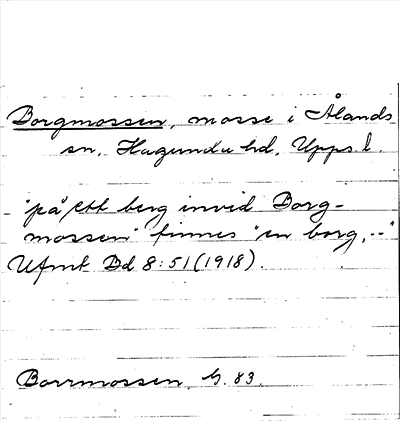 Borgmossen, mosse i Ålands
sn, Hagunda hd, Upps l.
"på ett berg invid Borg-
mossen" finnes "en borg, --"
Ufmt Bd 8:51 (1918).
Borrmossen, G. 83.